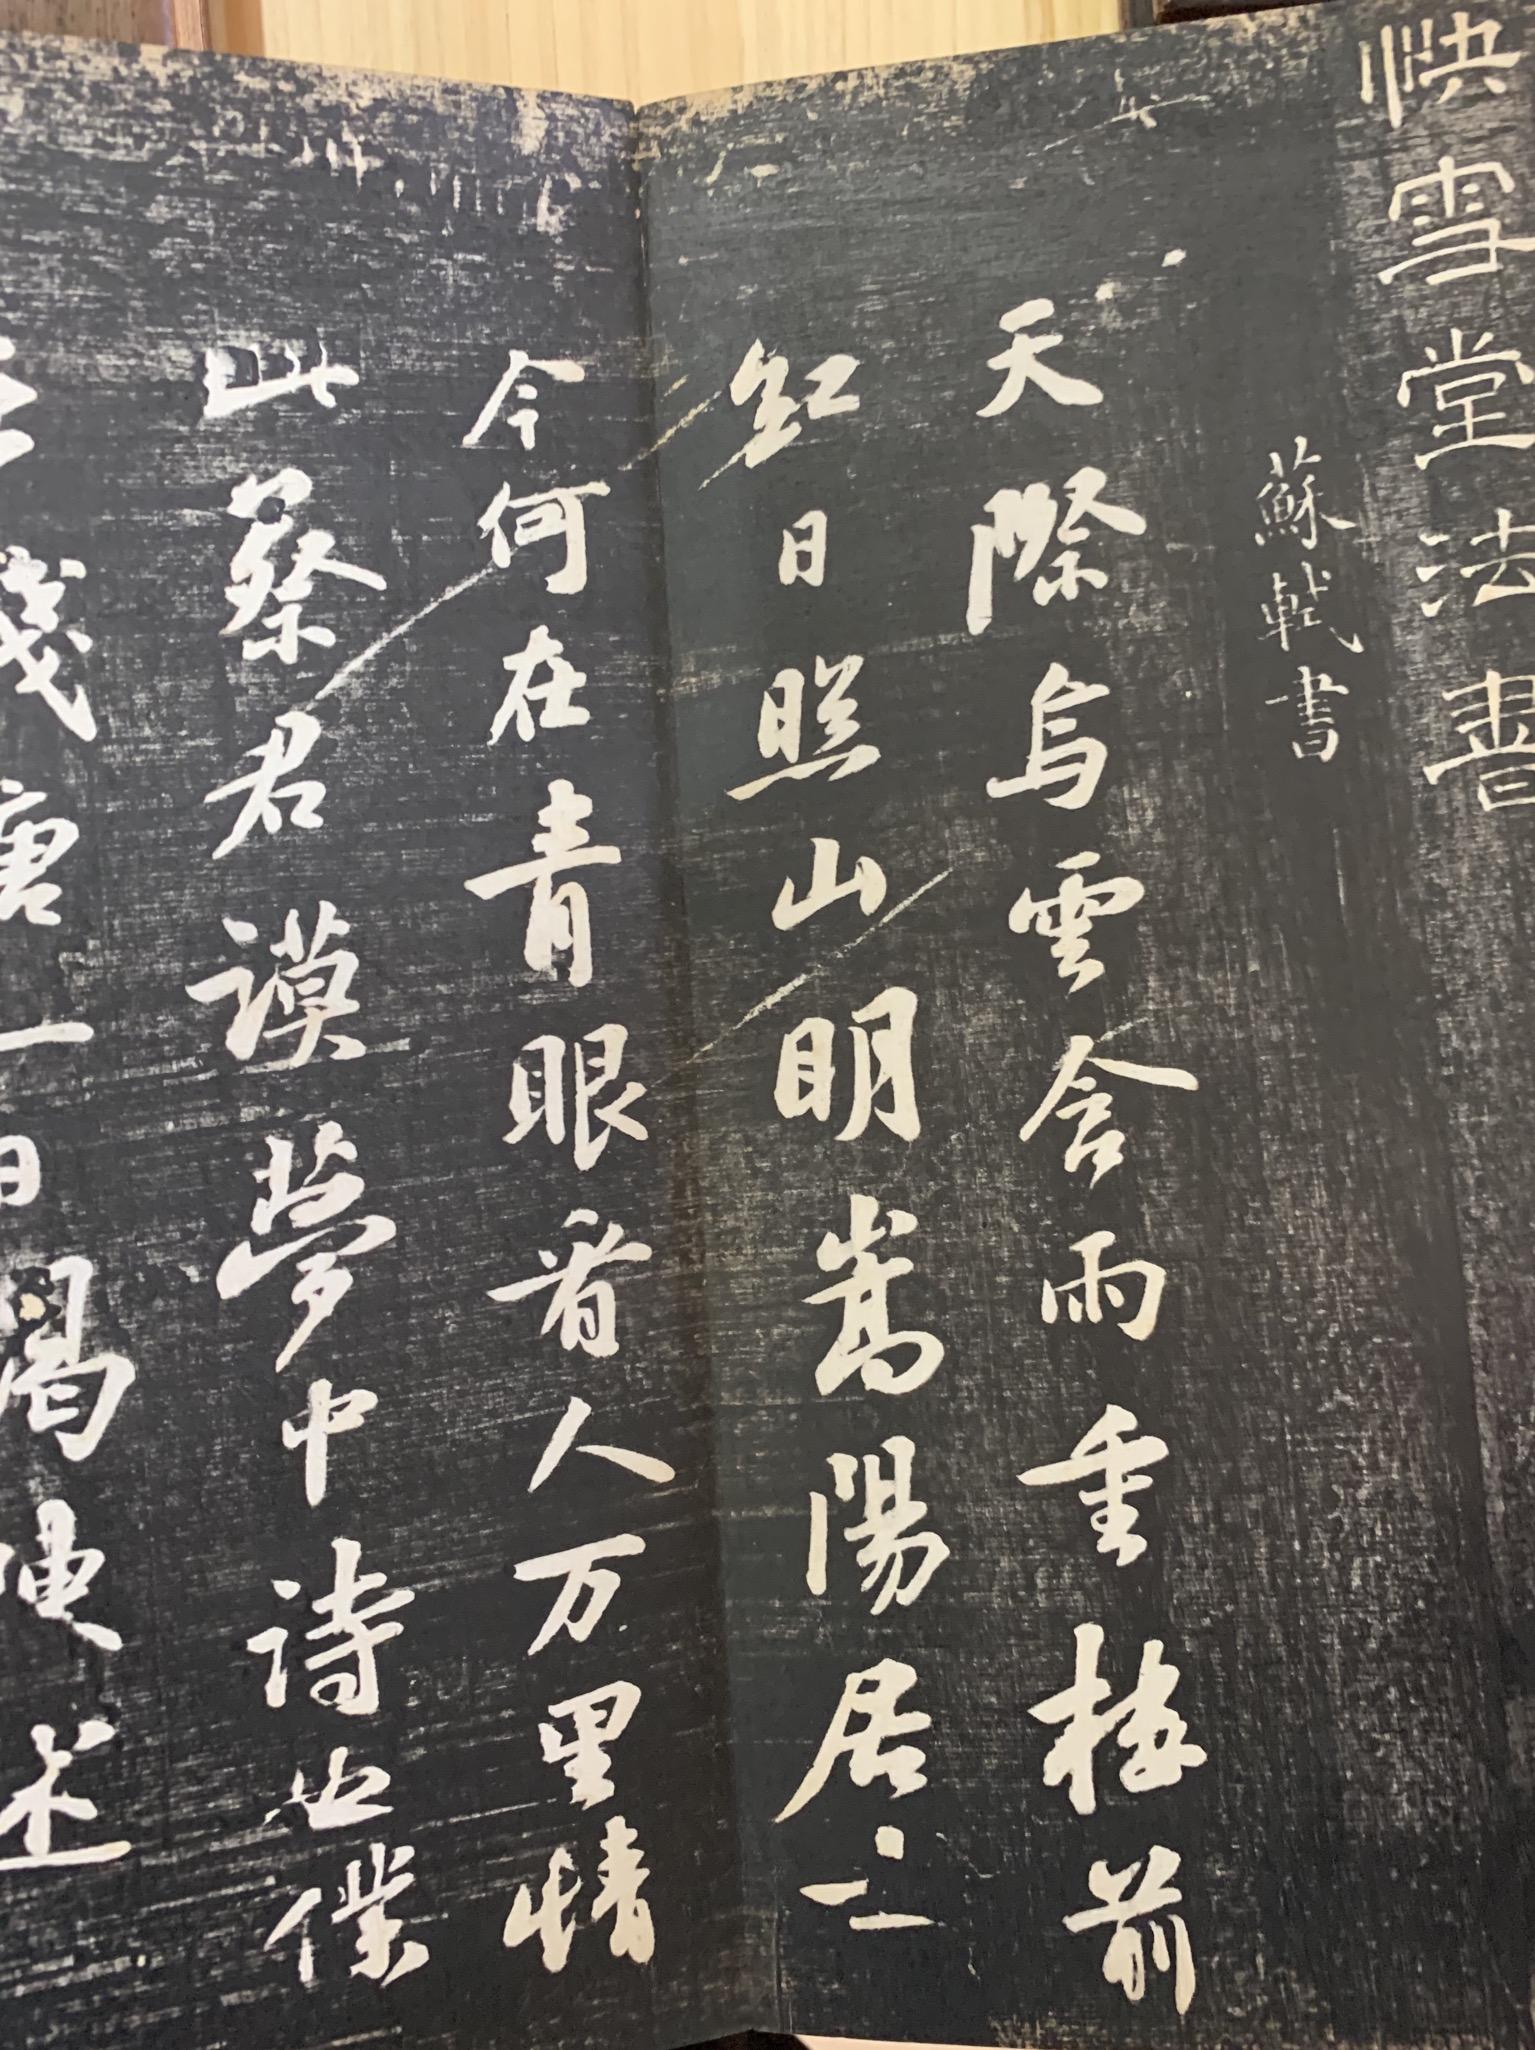 快雪堂法書
蘇軾書
天際烏雲含雨重樓前
紅日照山明嵩陽居士
今何在青眼看人万里情
此蔡君謨夢中詩也僕
在錢唐一日謁陳述